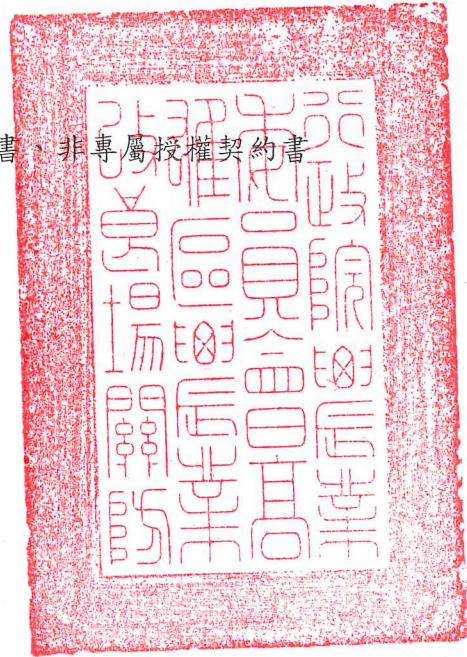 書、非專屬授權契約書
行政院農業
委員會高
雄區農業
改良場關防